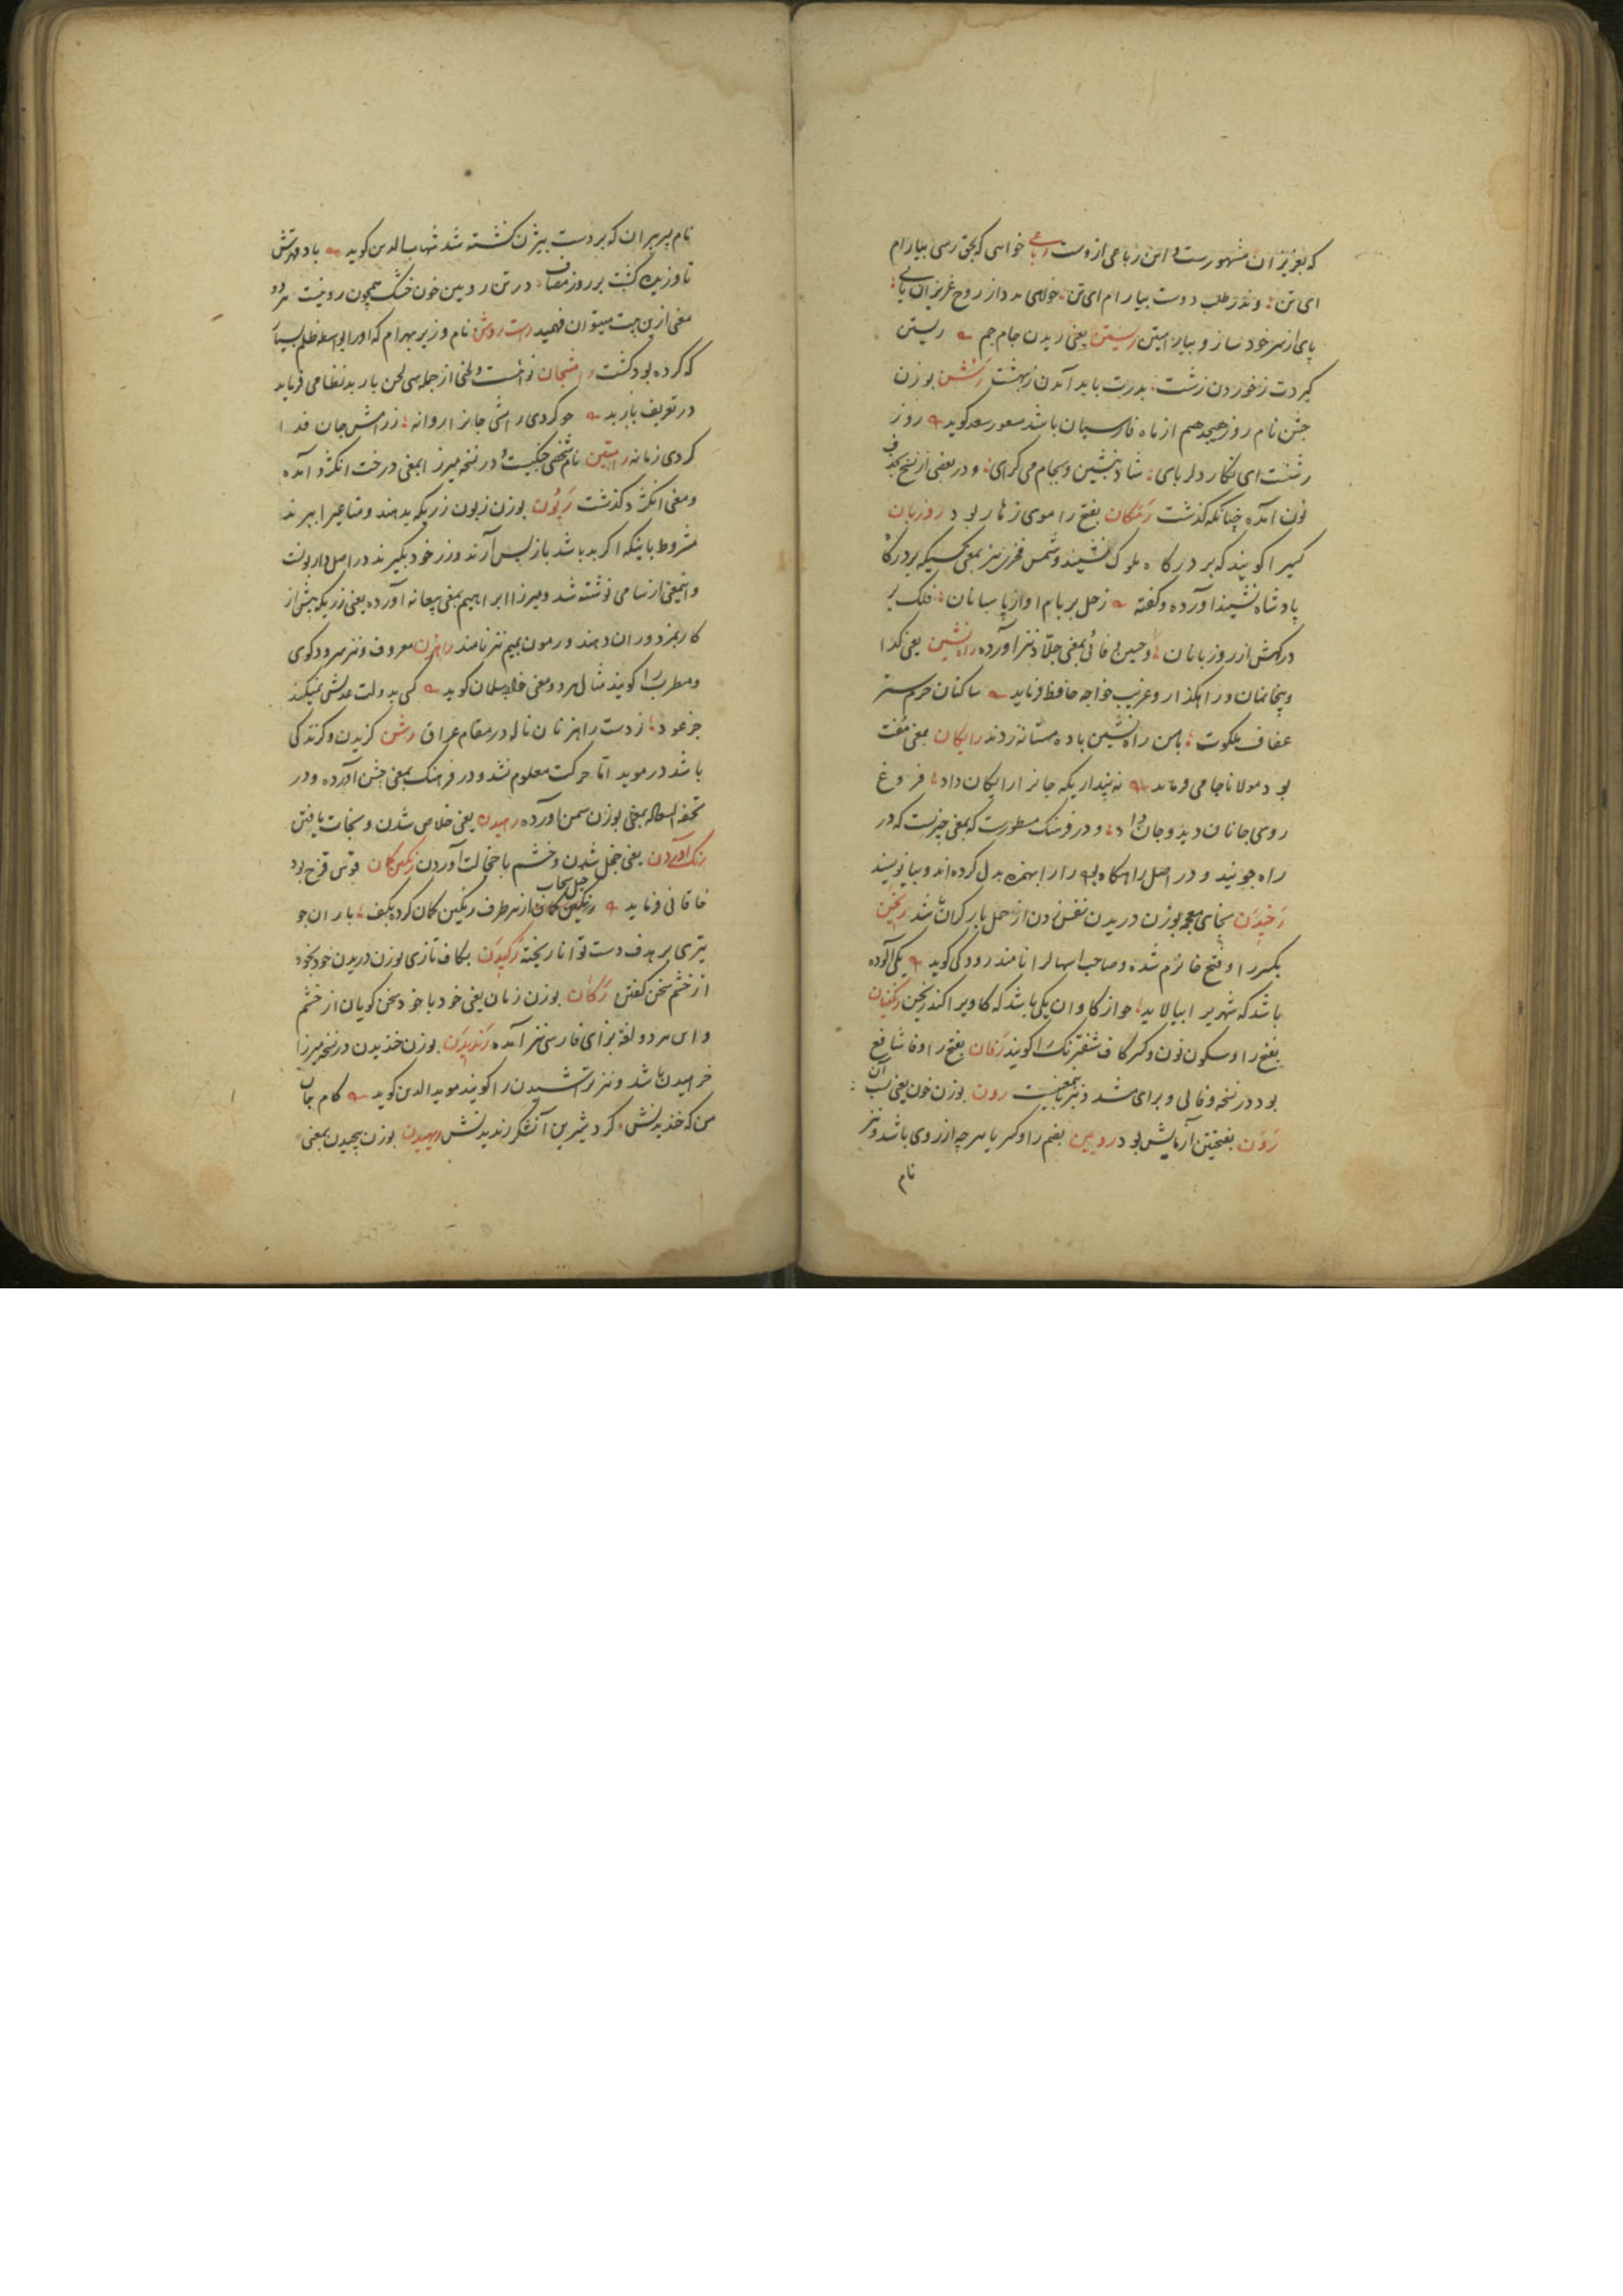 که بعزیزان مشهورست و این رباعی ازوست رباعی خواهی که بحق رسی بیارام
ای تن وندر طلب دوست بیارام ای تن خواهی مدد از روح عزیزان یابی
پای از سر خود ساز و بیا رامیتن رستین یعنی ریدن جام جم ریستن
گیردت ز خوردن زشت بدرت باید آمدن ز بهشت رشن بوزن
جشن نام روز هیجدهم از ماه فارسیان باشد مسعود سعد کوید روز
رشنست ای نکار دلربای شاد بنشین و بجام می کرای و در بعضی از نسخ بحذف
نون آمده چنانکه گذشت رمکان بفتح را موی زهار بود روزبان
کسیرا کویند که بر درکاه ملوک نشیند و شمس فخری نیز بمعنی کسیکه بر درکاه
پادشاه نشیند آورده و کفته زحل بر بام او از پاسبانان فلک بر
درکهش از روزبانان و حسین وفائی بمعنی جلاد نیز آورده راه نشین یعنی کدا
و بیخانمان و راهکذار و غریب خواجه حافظ فرماید ساکنان حرم ستر
عفاف ملکوت با من راه نشین باده مستانه زدند رایکان بمعنی مفت
بود مولانا جامی فرماید نه پنداری که جانرا رایکان داد فروغ
روی جانان دید و جان داد و در فرهنک مسطورست که بمعنی چیزیست که در
راه جویند و در اصل راهکان بوده را را بهمزه بدل کرده اند و بیا نویسند
رخیدن بخای معجمه بوزن دریدن نفس زدن از حمل بار گران باشد ریخن
بکسر را و فتح خا نرم شده و صاحب اسهالرا نامند رودکی کوید یکی آلوده
باشد که شهریرا بیالاید چو از کاوان یکی باشد که کاویرا کند ریخن رنکینان
بفتح را و سکون نون و کسر کاف شفترنک را کویند رفان بفتح را و فا شافع
بود در نسخه وفائی و برای مشدد نیز باین معنیست رون بوزن خون یعنی سبب آن
رون بفتحتین آزمایش بود رویین بضم را و کسر یا هرچه از روی باشد و نیز
نام
نام پسر پیران که بر دست بیژن کشته شد شهاب الدین کوید
تا وزیدن کشت بر روز مصاف در تن رویین خون خشک همچون روینست هر دو
معنی ازین بیت میتوان فهمید راست روشن نام وزیر بهرام که او را بواسطه ظلم بسیار
که کرده بود کشت رامشجان نوائیست و لحنی از جمله سی لحن باربد نظامی فرماید
در تعریف باربد چو کردی رامش جانرا روانه ز رامش جان فدا
کردی زمانه رامتین نام شخصی چنکیست و در نسخه میرزا بمعنی درخت انکژد آمده
و معنی انکژد کذشت ربون بوزن زبون زریکه بدهند و متاعیرا ببرند
مشروط باینکه اکر بد باشد باز پس آرند و زر خود بگیرند در اصل اربونست
و اینمعنی از سامی نوشته شد و میرزا ابراهیم بمعنی بیعانه آورده یعنی زریکه پیش از
کار بمزدوران دهند و رمون بمیم نیز نامند راهزن معروف و نیز سرودکوی
و مطربرا کویند مثال هر دو معنی خواجه سلمان کوید کسی بدولت عدلش نمیکند
جز عود ز دست راهزنان ناله در مقام عراق رشن کزیدن و کزندکی
باشد در موید اما حرکت معلوم نشد و در فرهنک بمعنی جشن آورده و در
تحفة السعاده بمعنی بوزن سمن آورده رهیدن یعنی خلاص شدن و نجات یافتن
رنک آوردن یعنی خجل شدن و خشم با خجالت آوردن رنکین کمان قوس قزح بود
خاقانی فرماید از هر طرف رنکین کمان کرده بکف باران چو
تیری بر هدف دست توانا ریخته رکیدن بکاف تازی بوزن دریدن خود بخود
از خشم سخن کفتن رکان بوزن زمان یعنی خود با خود سخن کویان از خشم
و این هر دو لغة بزای فارسی نیز آمده رندیدن بوزن خندیدن در نسخه میرزا
خرامیدن باشد و نیز تراشیدن را کویند موید الدین کوید
من که خندیدنش کرد شیرین آنشکر رندیدنش رهیدن بوزن پیچیدن بمعنی